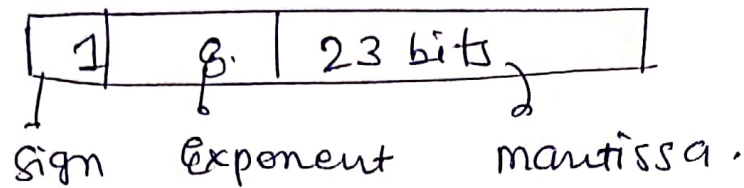 1 8. 23 bits
sign Exponent mantissa.